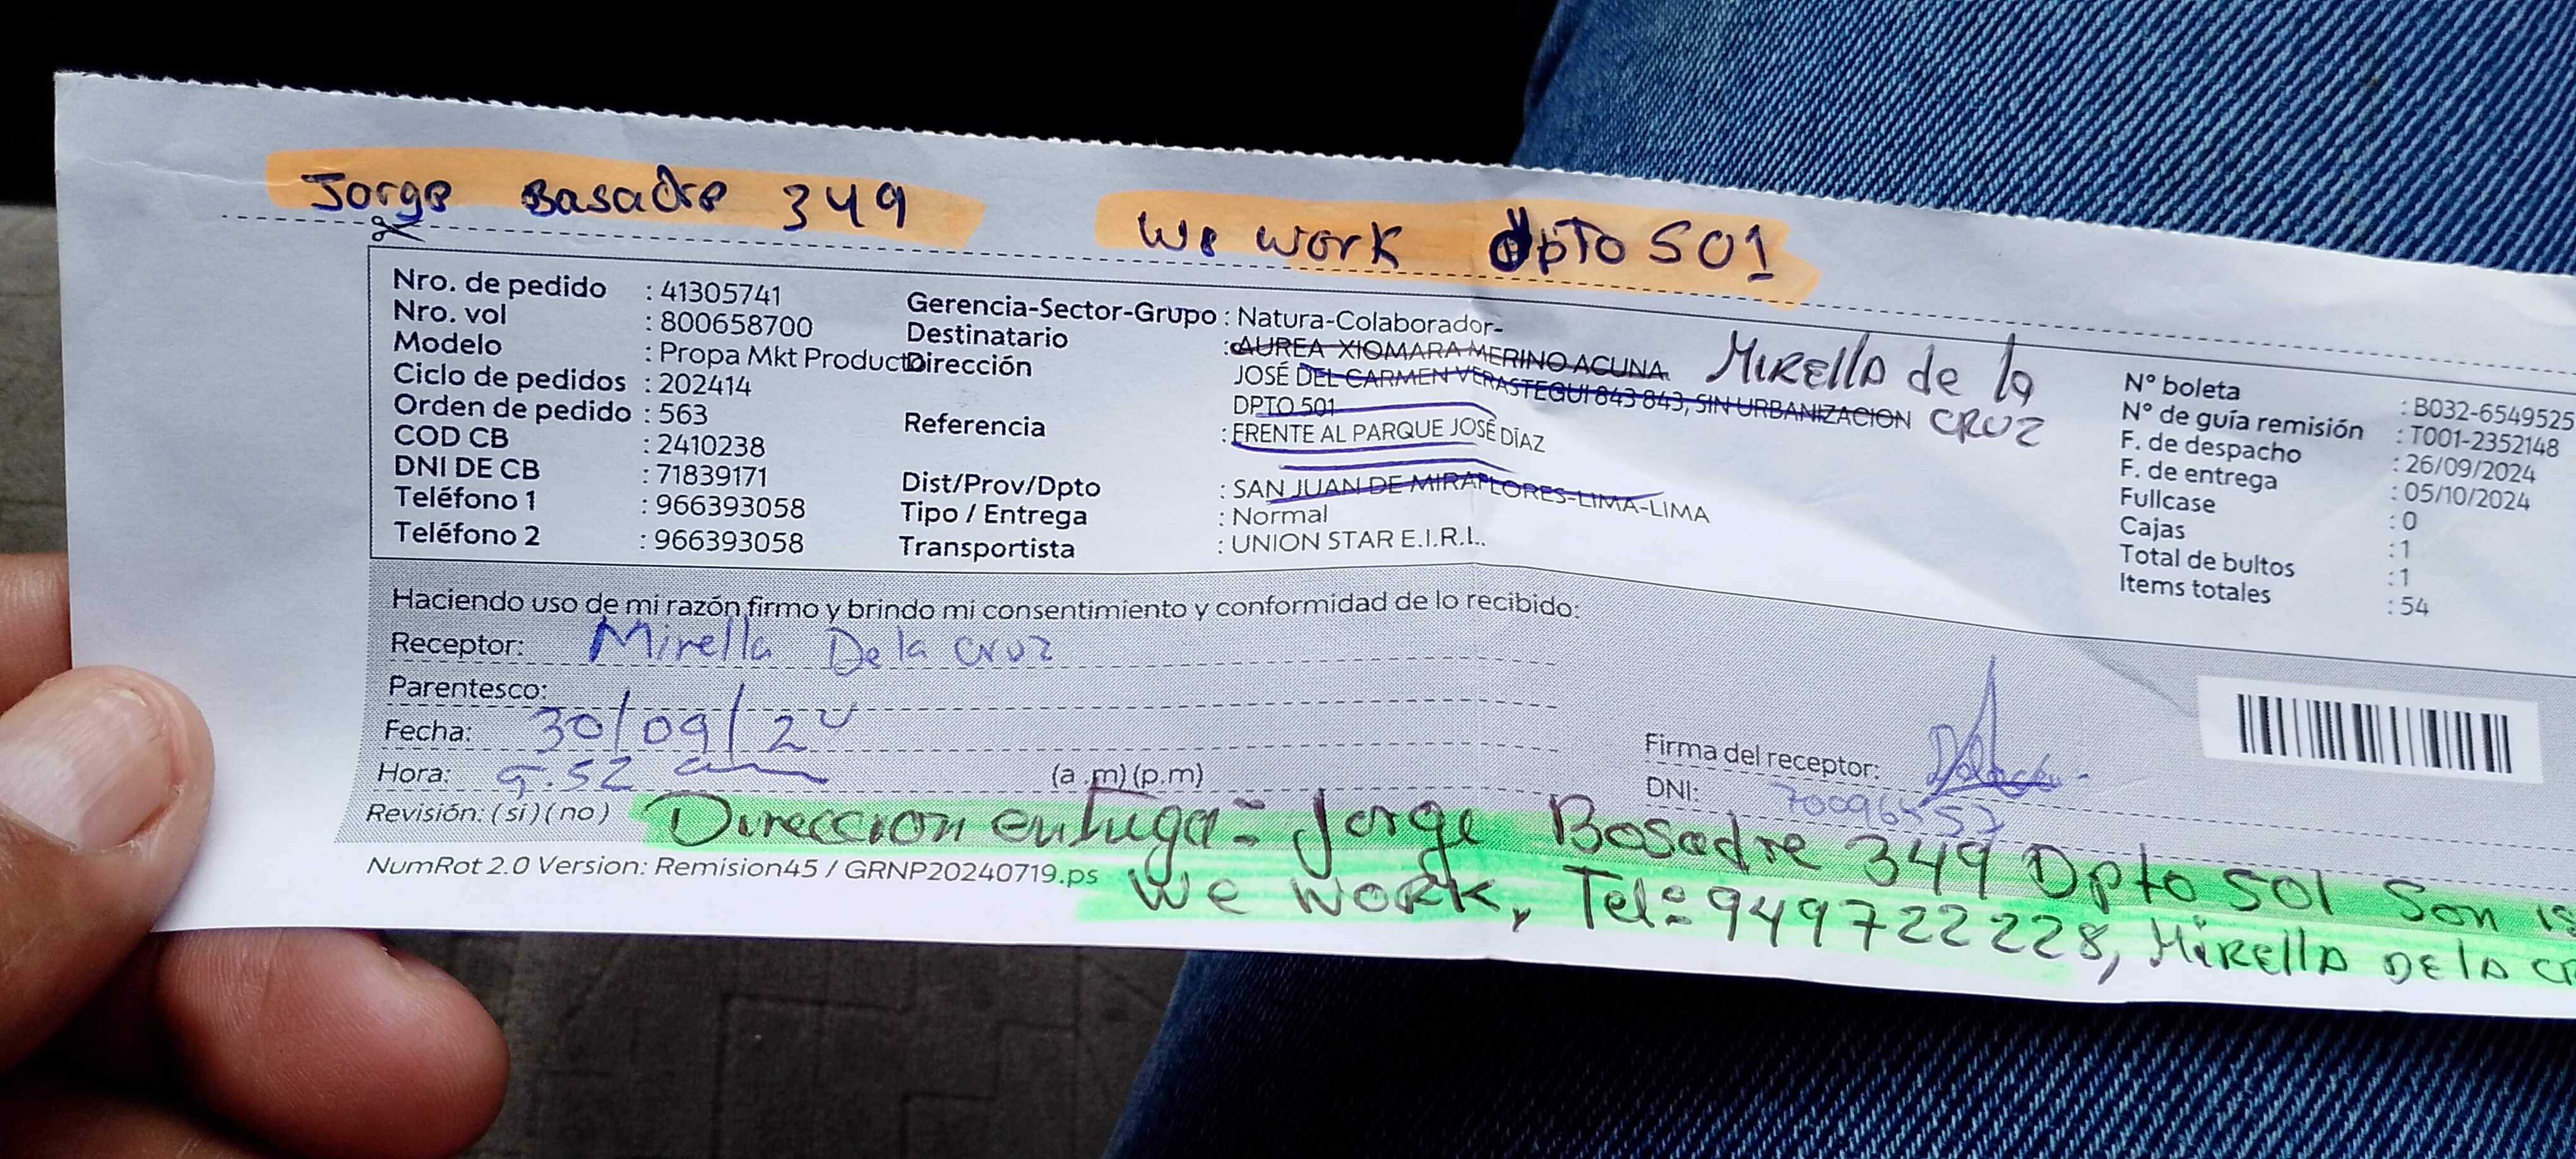 Jorge Basadre 349 We work dpto 501
Nro. de pedido : 41305741
Nro. vol : 800658700
Modelo : Propa Mkt Product
Ciclo de pedidos : 202414
Orden de pedido : 563
COD CB : 2410238
DNI DE CB : 71839171
Teléfono 1 : 966393058
Teléfono 2 : 966393058
Gerencia-Sector-Grupo : Natura-Colaborador-
Destinatario : AUREA XIOMARA MERINO ACUNA
Dirección JOSÉ DEL CARMEN VERASTEGUI 843 843, SIN URBANIZACION
DPTO 501
Referencia : FRENTE AL PARQUE JOSÉ DÍAZ
Dist/Prov/Dpto : SAN JUAN DE MIRAFLORES-LIMA-LIMA
Tipo / Entrega : Normal
Transportista : UNION STAR E.I.R.L.
Mirella de la
CRUZ
N° boleta : B032-6549525
N° de guía remisión : T001-2352148
F. de despacho : 26/09/2024
F. de entrega : 05/10/2024
Fullcase : 0
Cajas : 1
Total de bultos : 1
Items totales : 54
Haciendo uso de mi razón firmo y brindo mi consentimiento y conformidad de lo recibido:
Receptor: Mirella De la cruz
Parentesco:
Fecha: 30/09/24
Hora: 9.52 am (a .m) (p.m)
Revisión: (si) (no)
Firma del receptor:
DNI:
Direccion entrega: Jorge Basadre 349 Dpto 501 San
We work, Tel: 949722228, Mirella De la
NumRot 2.0 Version: Remision45 / GRNP20240719.ps